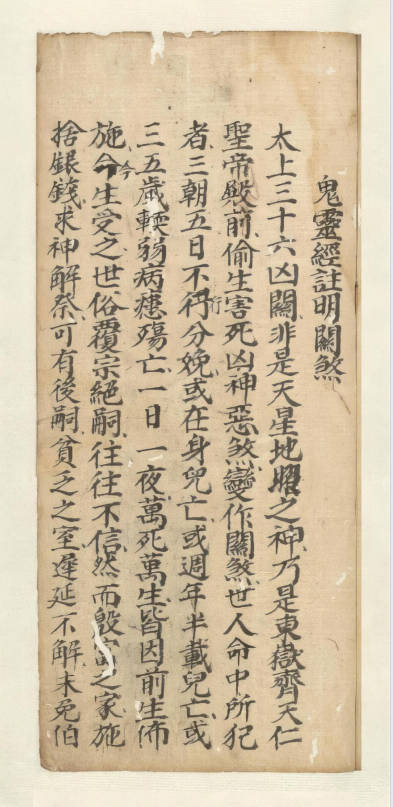 鬼靈經註明關煞
太上三十六凶關非是天星地曜之神乃是東嶽齊天仁
聖帝殿前偷生害死凶神惡煞變作關煞世人命中所犯
者三朝五日不行分娩或在身兒亡或週年半載兒亡或
三五歲輭弱病殤亡一日一夜萬死萬生皆因前生佈
施今生受之世俗覆宗絕嗣往往不信然而毀富之家施
捨銀錢求神解祭可有後嗣貧乏之室遲延不解未免伯